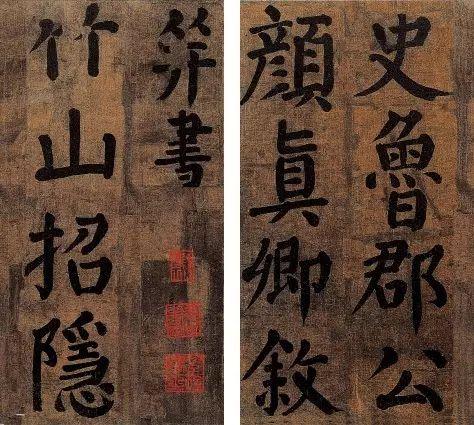 史魯郡公
顏真卿敘
幷書
竹山招隱